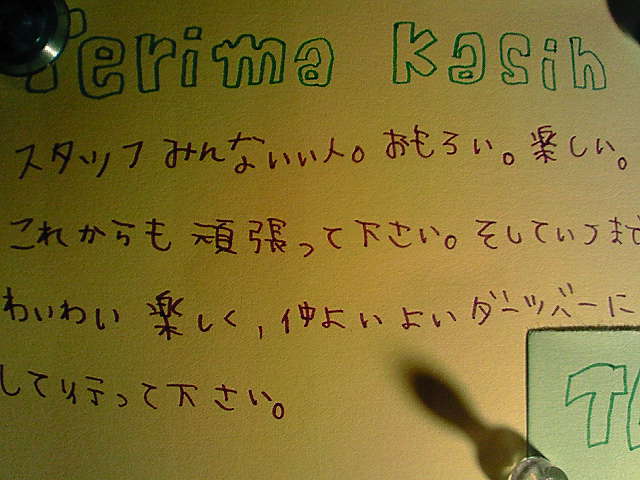 Terima Kasih
スタッフみんないい人。おもろい。楽しい。
これからも頑張って下さい。そしていつまで
わいわい楽しく,仲よいよいダーツバーに
して行って下さい。